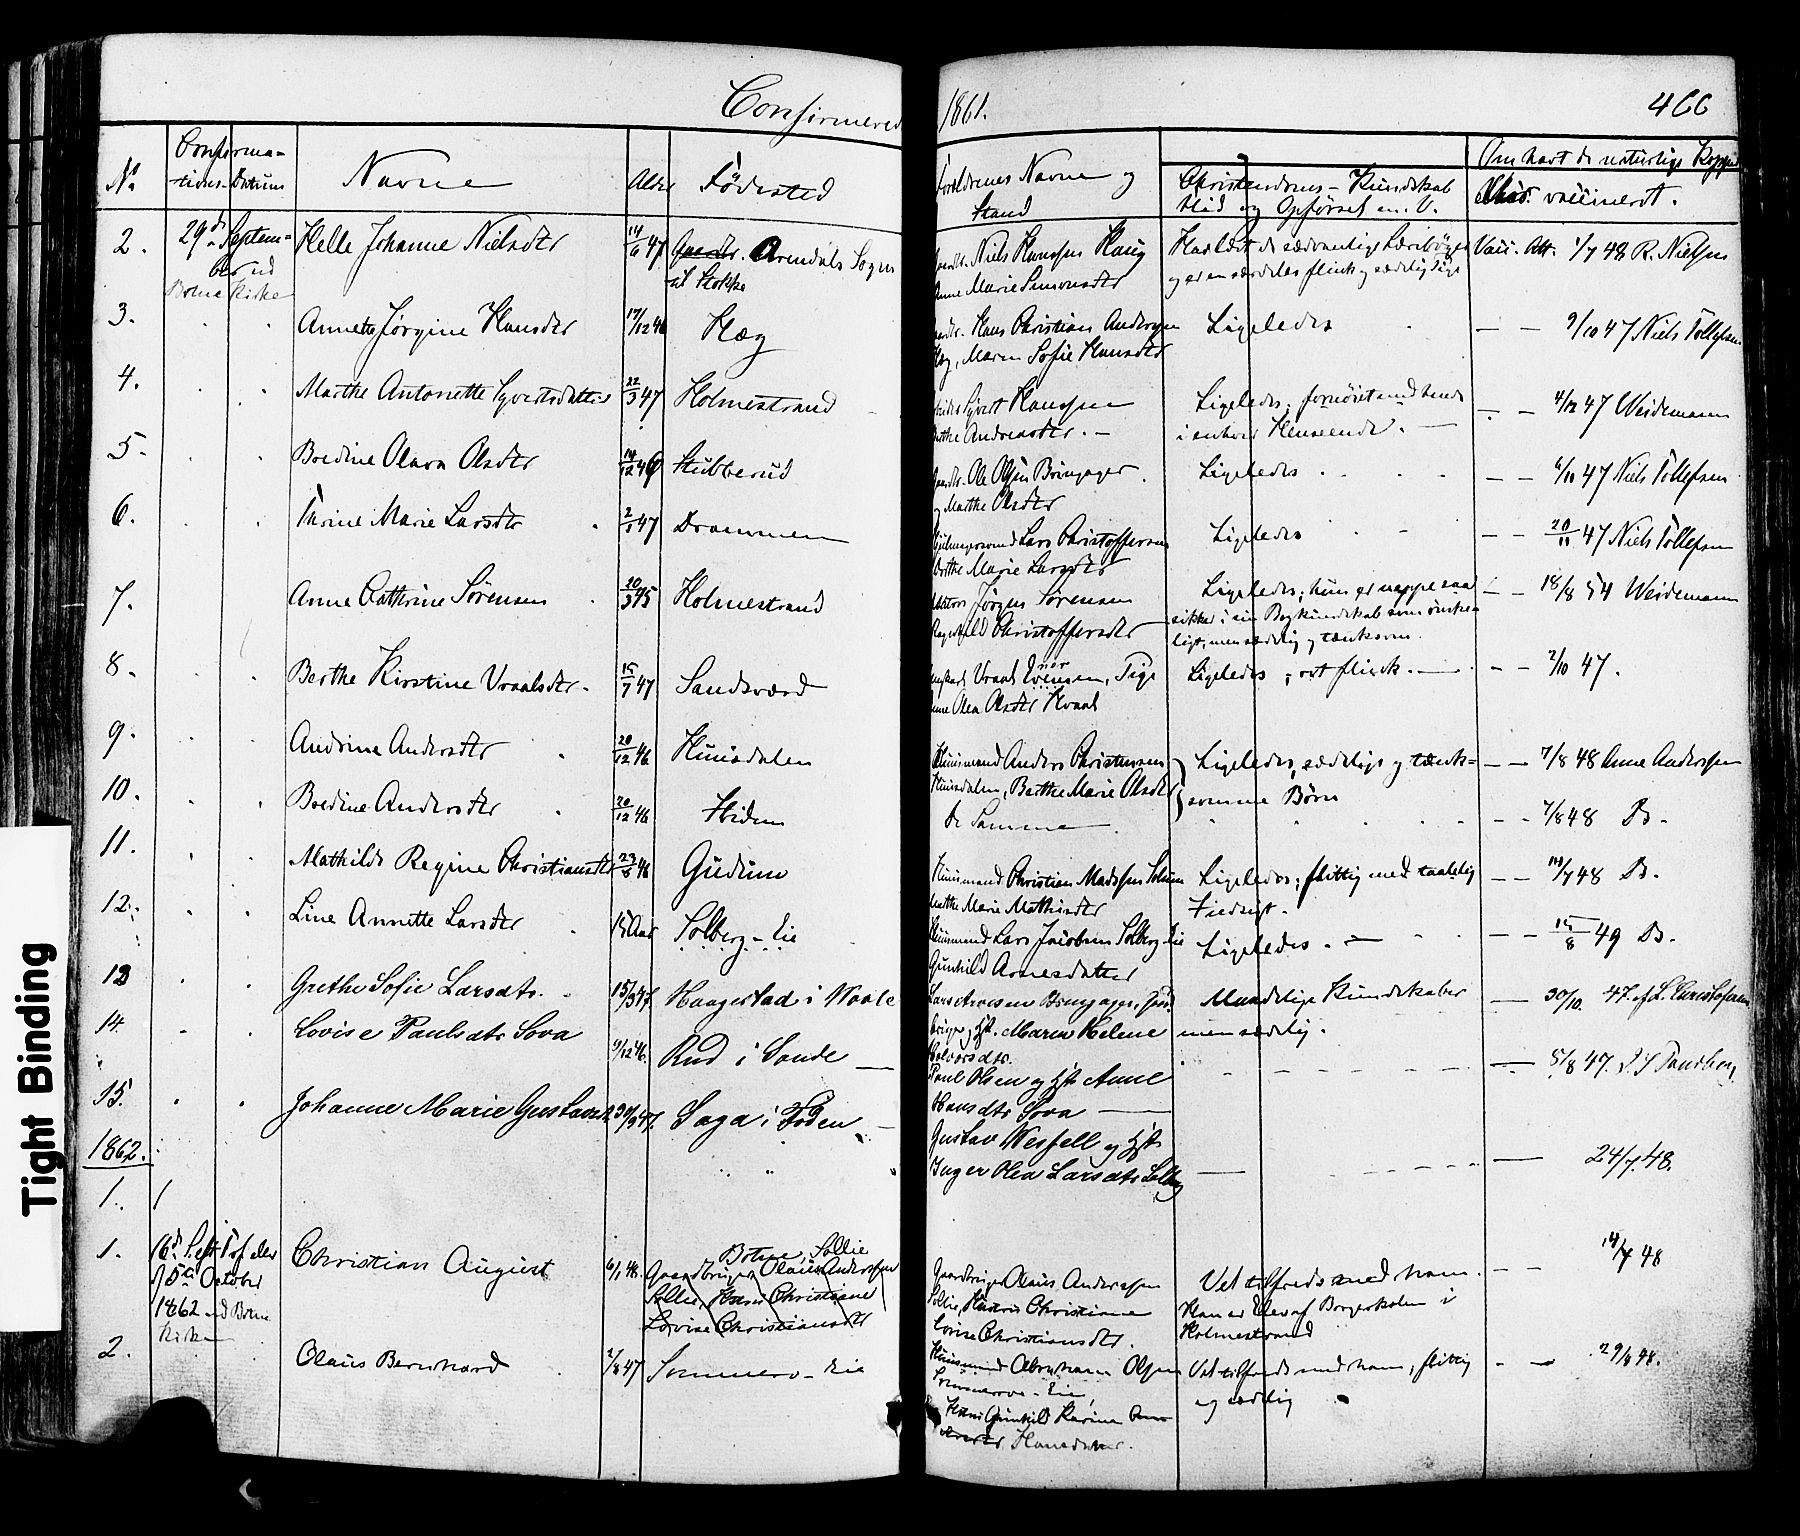 Confirmered 1861. 466
No Confirmations-Datum Navne Alder Fødested Forældrenes Navne og Stand Christendoms-Kundskab Flid og Opførsel m. V. Om havt de naturlige Kopper eller vaccineret.
2. 29d Septem- Helle Johanne Nielsdtr 14/6 47 Arendals Sogn
til Stokke
Botne Kirke
Niels Hanssen Haug
Anne Marie Simonsdtr
Har læst de sædvanlige Lærebøger
og er en særdeles flink og sædelig Pige
Vacc. Att. 1/7 48 R. Nielsen
3. Annette Jørgine Hansdtr 17/12 46 Hæg
Hans Christian Andersen
Hæg, Maren Sofie Hansdtr
Ligeledes
— — 9/10 47 Niels Tollefsen
4. Marthe Antonette Syvertsdatter 22/3 47 Holmestrand
Syvert Hanssen
Berthe Andreasdtr. —
Ligeledes; fornøiet med hende
i enhver Henseende. —
— — 4/12 47 Weidemann
5. Bredine Olava Olsdtr 14/12 46 Stubberud
Ole Olsen Bringager
og Marthe Olsdtr
Ligeledes
— — 6/10 47 Niels Tollefsen
6. Thrine Marie Larsdtr 2/1 47 Drammen
Lars Christoffersen
Berthe Marie Larsdtr
Ligeledes
— — 20/11 47 Niels Tollefsen
7. Anne Cathrine Sørensen 20/3 45 Holmestrand
Jørgen Sørensen
Ragnhild Christoffersdtr
Ligeledes; hun er neppe saa
sikker i sin Bogkundskab som ønske-
ligt, men sædelig og tænksom.
— — 18/8 54 Weidemann
8. Berthe Kirstine Vraalsdtr. 15/7 47 Sandsværd
Vraal Evensen, Pige
Anne Olea Olsdtr Hvaal
Ligeledes, ret flink. —
— — 2/10 47.
9. Andrine Andersdtr 20/12 46 Huusdalen
Huusmand Anders Christensen
Huusdalen, Berthe Marie Olsdtr
Ligeledes, sædelige og tænk-
somme Børn
— — 7/8 48 Anne Anderssen
10. Bredine Andersdtr 20/12 46 Hidem
De Samme
— — 7/8 48 Do.
11. Mathilde Regine Christiansdtr 23/6 46 Gudum
Huusmand Christian Madssen Solum
Marthe Marie Mathisdtr
Ligeledes; flittig med taalelig
Indsigt.
— — 14/7 48 Do.
12. Line Annette Larsdtr 15 Aar Solberg-Eie
Huusmand Lars Jacobsen Solberg-Eie
Gunhild Arnesdatter
Ligeledes. —
— — 15/8 49 Do.
13 Grethe Sofie Larsdtr. 15/3 47. Haagestad i Vaale
Lars
bruger og Hst. Maren Helene
Halvorsdtr.
Maadelige Kundskaber
men sædelig.
— 30/10. 47. af L. Christofersen
14. Lovise Paulsdtr Sova 9/12 46. Rud i Sande —
Paul Olsen og Hst Anne
Hansdtr Sova —
— 5/8 47. Sandberg
15. Johanne Marie Gustavsd. 30/3 47. Saga i Foden
Gustav Wesfell og Hst
Inger Olea Larsdtr Solberg
— 24/7. 48.
1862.
1. /
1. 16d October Christian August 6/1 48. Botne, Sollie
Gaardbruger Olaus Anderssen
Sollie, Hans Christiane
Lovise Christiansdtr
1862 ved Botne
Kirke
Gaardbruger Olaus Anderssen
Sollie, Hustru Christiane
Lovise Christiansdtr.
Vel tilfreds med ham.
Han er Elev af Borgerskolen i
Holmestrand
— — 14/7 48
2. Olaus Bernhard 2/8 47 Sommerro-Eie
Huusmand Abraham Olsen
Sommerroe-Eie,
Hans Gunhild Karine
Hansdatter.
Vel tilfreds med ham, flittig
og sædelig
— — 29/8 48.
Tight Binding